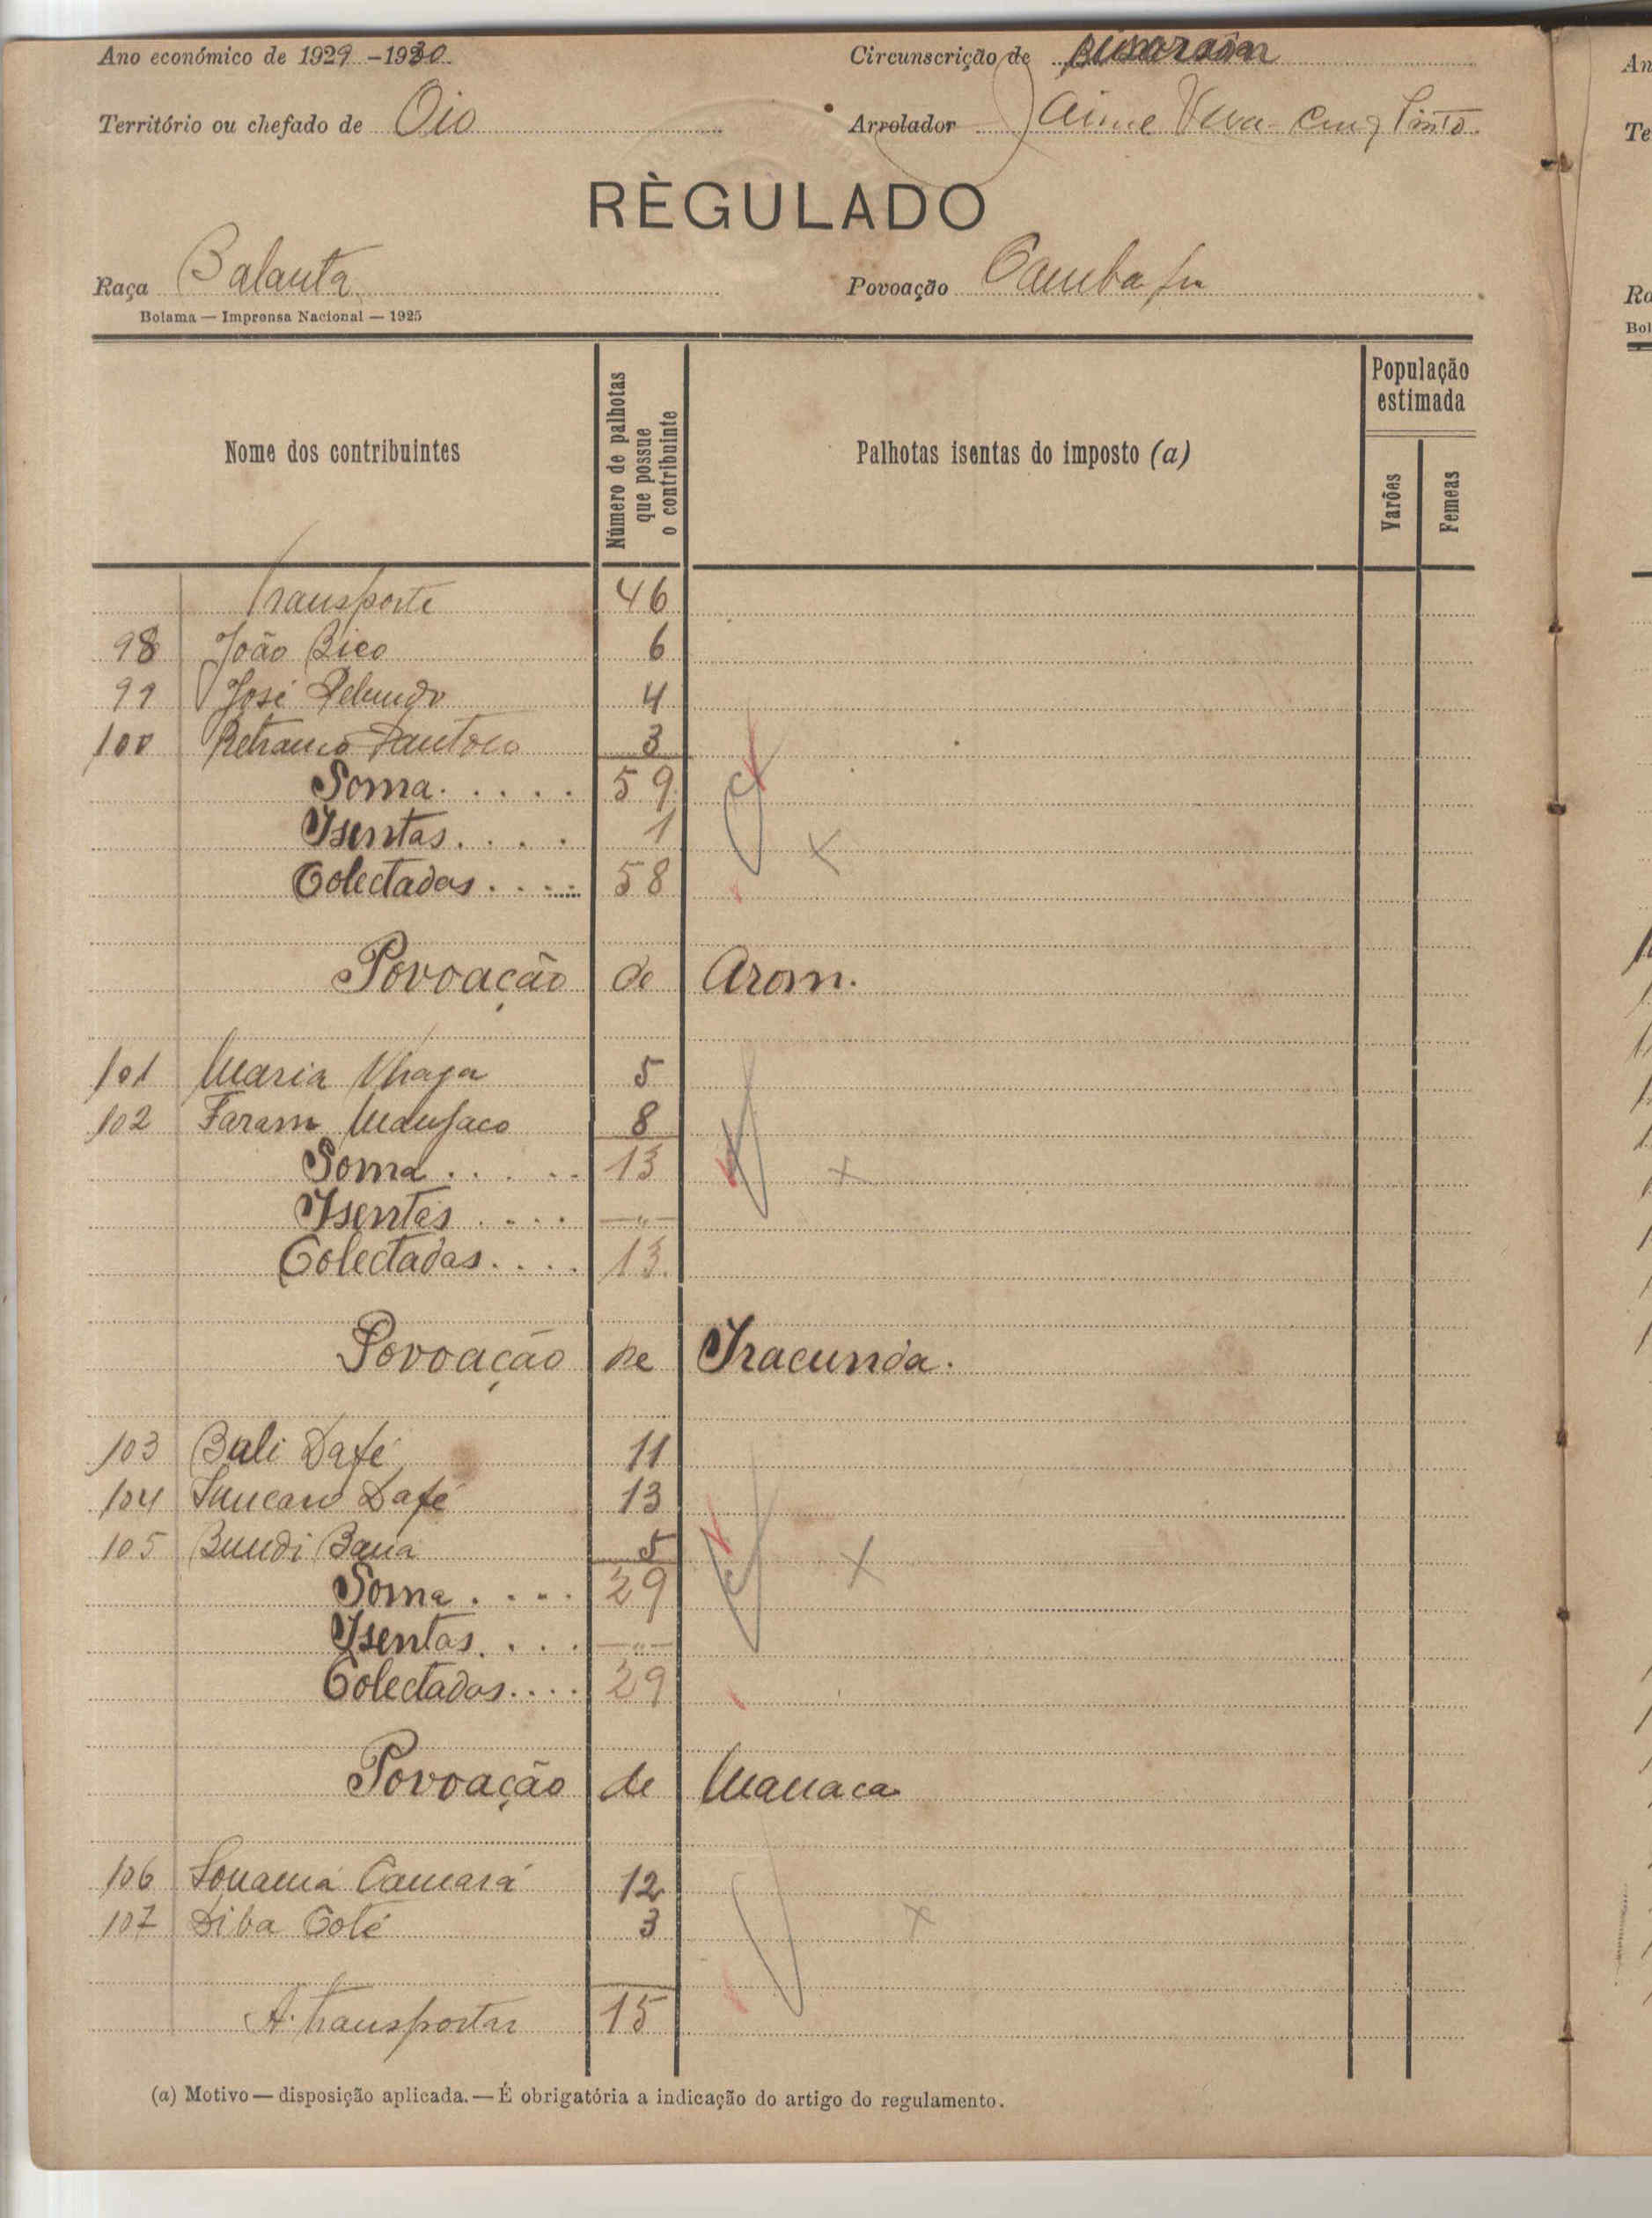 Ano económico de 1929-1930 Circunscrição de Bissoram
Território ou chefado de Oio Arrolador Jaime Vera-Cruz Pinto
RÈGULADO
Raça Balanta Povoação Camba
Bolama — Imprensa Nacional — 1925
Nome dos contribuintes
Número de palhotas que possue o contribuinte
Palhotas isentas do imposto (a)
População estimada
Varões
Femeas
Transporte 46
98 João Bico 6
99 José 4
100 3
Soma..... 59
Isentas.... 1
Colectadas.... 58
Povoação de Arom.
101 Maria 5
102 Faram Mansaco 8
Soma..... 13
Isentas.... —"—
Colectadas.... 13
Povoação de Iracunda.
103 Buli Dafé 11
104 Suncaro Dafé 13
105 Bundi Bana 5
Soma.... 29
Isentas.... —"—
Colectadas.... 29
Povoação de Manaca
106 Camará 12
107 Diba Coté 3
A transportar 15
(a) Motivo — disposição aplicada. — É obrigatória a indicação do artigo do regulamento.